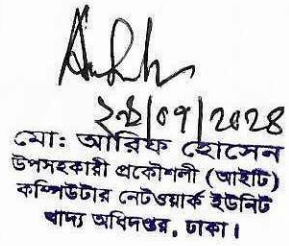 ২৯/০৭/২০২৪
মো: আরিফ হোসেন
উপসহকারী প্রকৌশলী (আইটি)
কম্পিউটার নেটওয়ার্ক ইউনিট
খাদ্য অধিদপ্তর, ঢাকা।